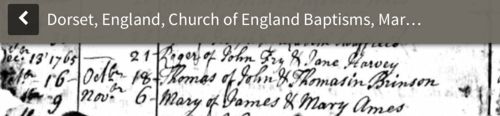 Dorset, England, Church of England Baptisms, Mar…
Dec.br 13th 1765 — 21 - Roger of John Fry & Jane Harvey
16 - Octbr 18 - Thomas of John & Thomasin Brinson
9 Novbr 6 - Mary of James & Mary Ames